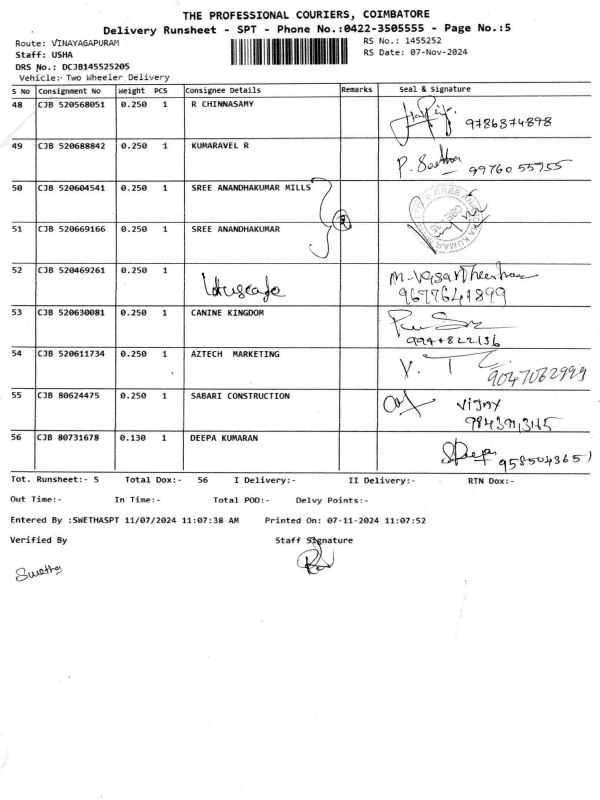 THE PROFESSIONAL COURIERS, COIMBATORE
Delivery Runsheet - SPT - Phone No.:0422-3505555 - Page No.:5
Route: VINAYAGAPURAM
RS No.: 1455252
Staff: USHA
RS Date: 07-Nov-2024
DRS No.: DCJB145525205
Vehicle:- Two Wheeler Delivery
S No Consignment No Weight PCS Consignee Details Remarks Seal & Signature
48 CJB 520568051 0.250 1 R CHINNASAMY
9786874898
49 CJB 520688842 0.250 1 KUMARAVEL R
P. Seetha 9976055755
50 CJB 520604541 0.250 1 SREE ANANDHAKUMAR MILLS
51 CJB 520669166 0.250 1 SREE ANANDHAKUMAR
52 CJB 520469261 0.250 1
9677641899
53 CJB 520630081 0.250 1 CANINE KINGDOM
9944822136
54 CJB 520611734 0.250 1 AZTECH MARKETING
9047062999
55 CJB 80624475 0.250 1 SABARI CONSTRUCTION
VIJAY
56 CJB 80731678 0.130 1 DEEPA KUMARAN
SDeepa 9585043651
Tot. Runsheet:- 5 Total Dox:- 56 I Delivery:- II Delivery:- RTN Dox:-
Out Time:- In Time:- Total POD:- Delvy Points:-
Entered By :SWETHASPT 11/07/2024 11:07:38 AM Printed On: 07-11-2024 11:07:52
Verified By Staff Signature
Swetha